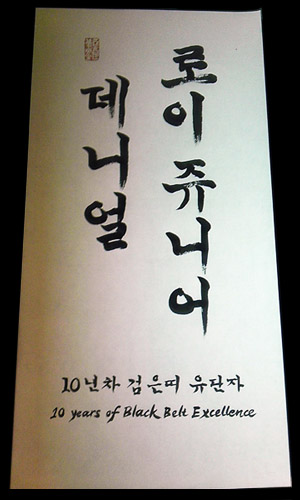 로이 쥬니어
데니얼
10년차 검은띠 유단자
10 years of Black Belt Excellence